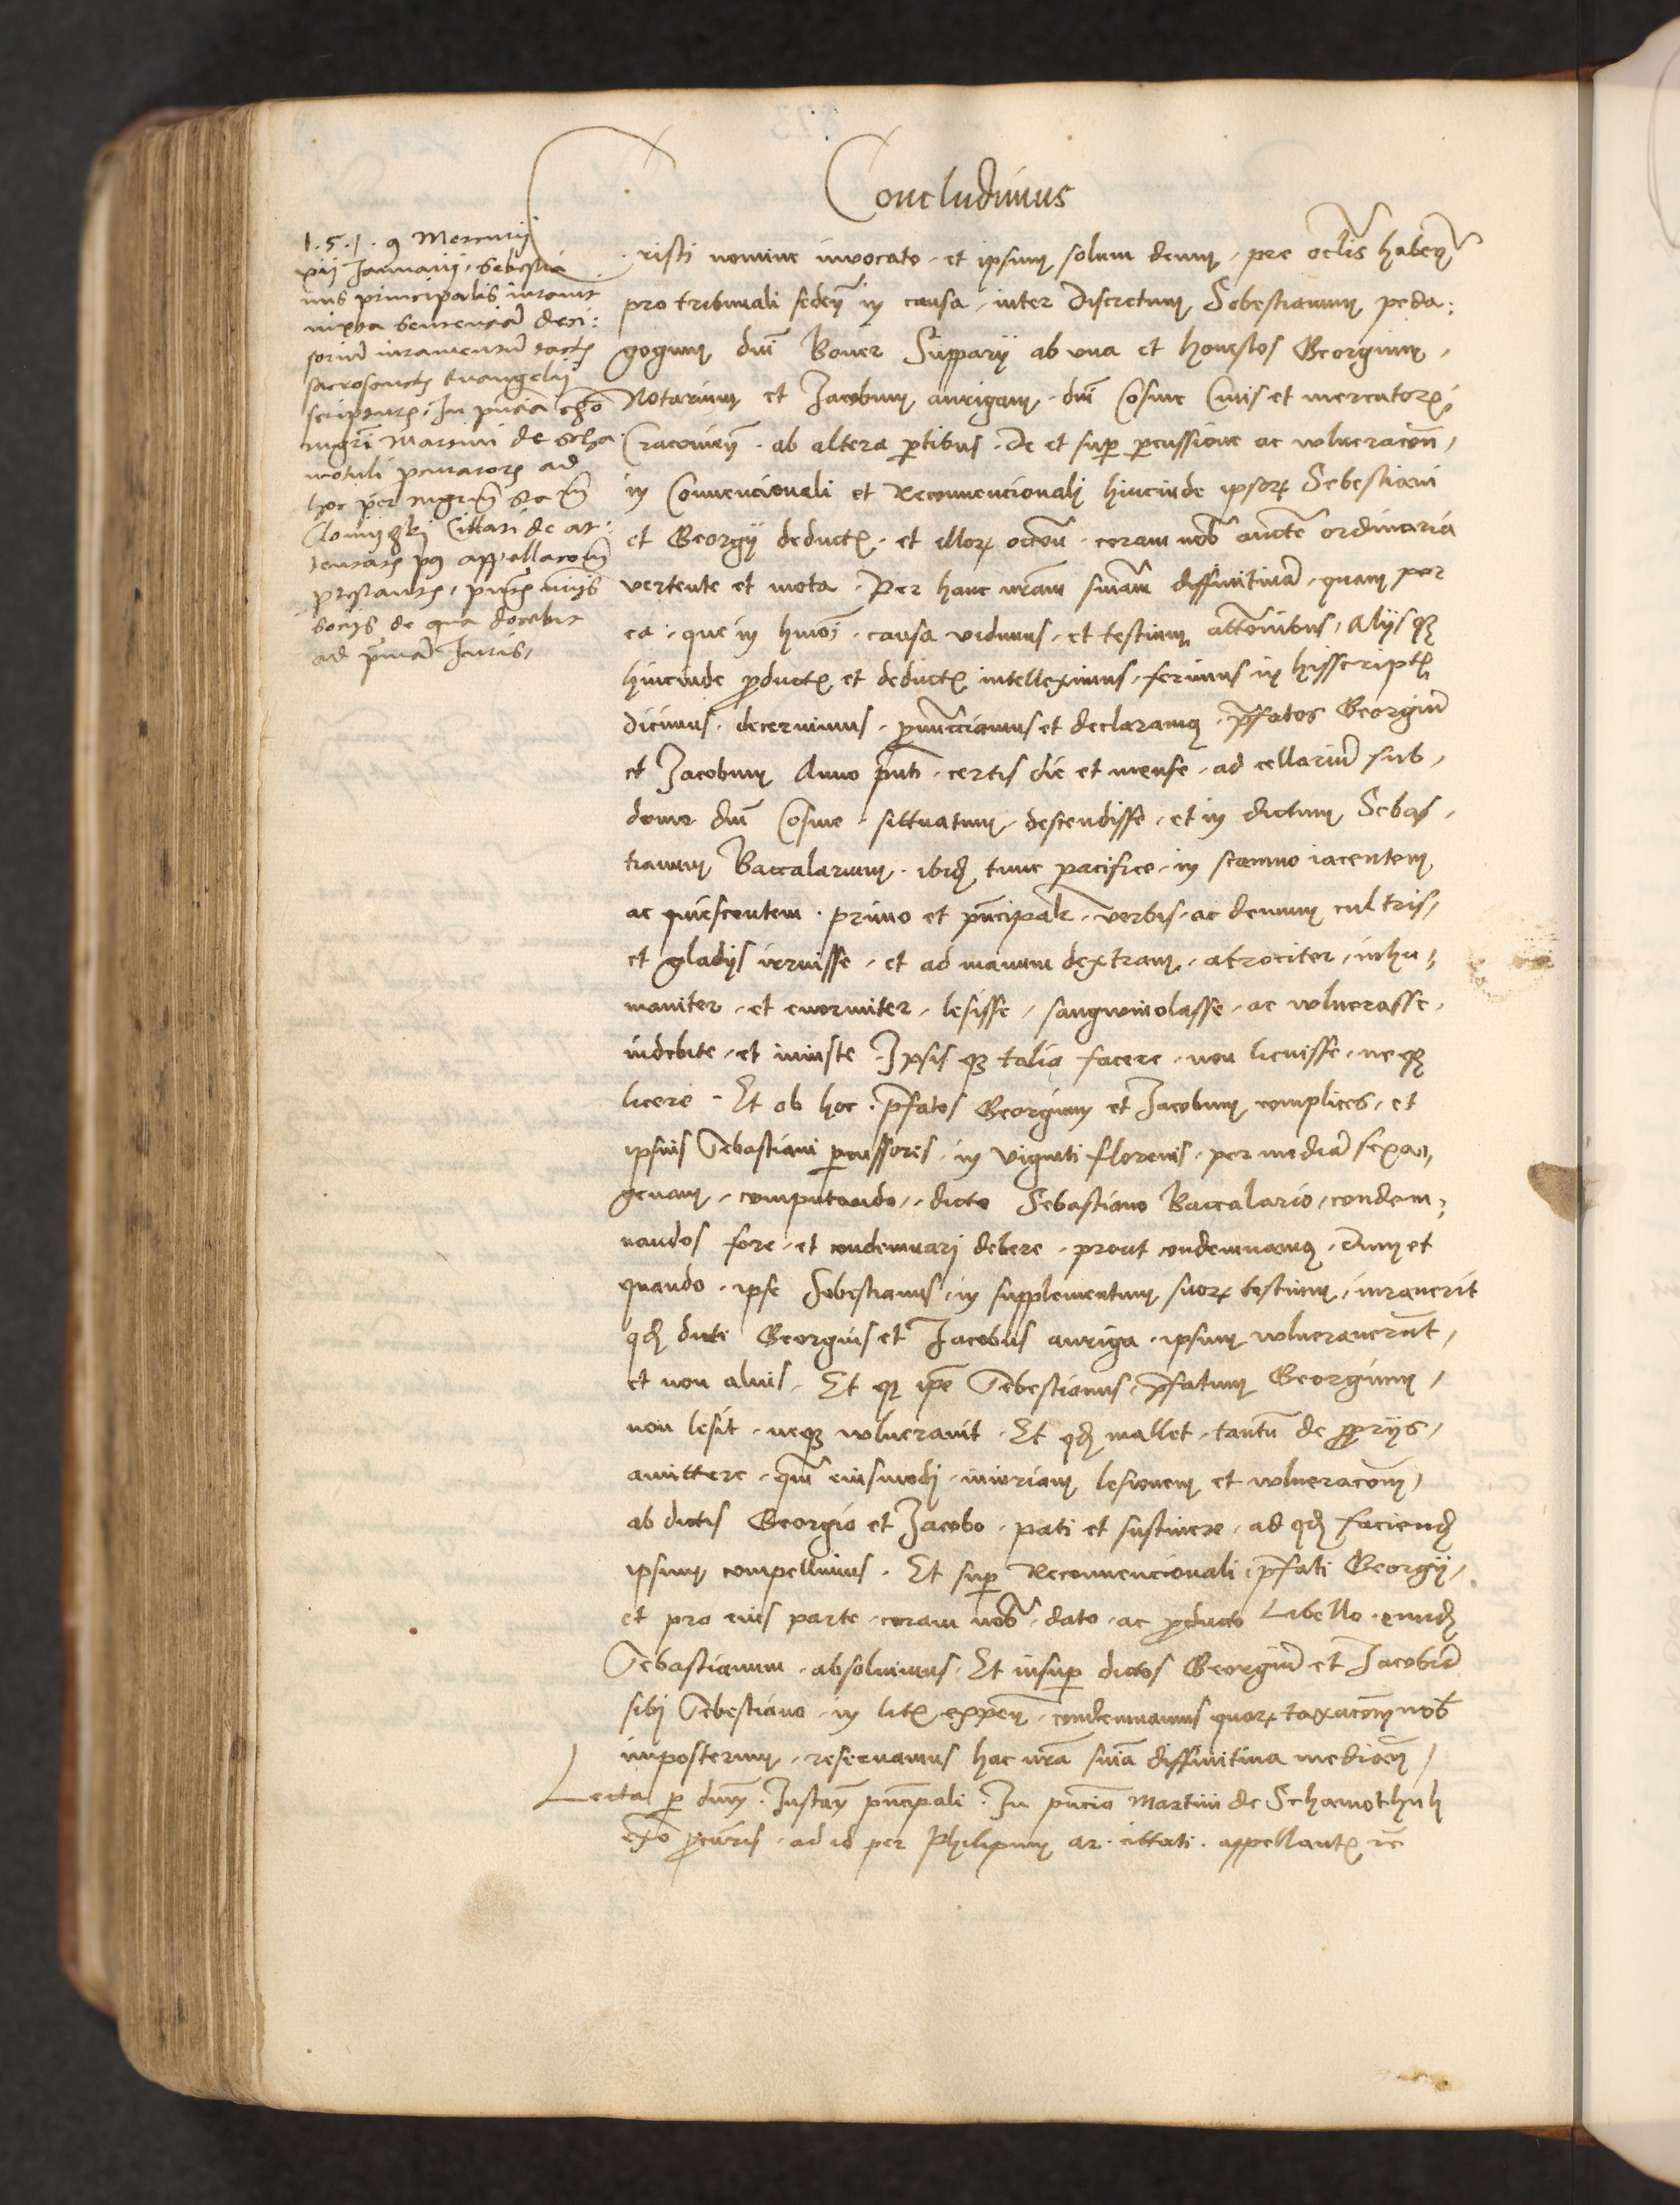 Concludimus
1.5.1.9 Mercurij
xij Januarij, Sebestia
nus principalis iuravit
iuxta sentenciā deci:
soriū iuramentū tact̨
sacrosanct̨ Evangelij
script̨, In pn̄cia
mgr̄i Martini de Scha
motuli ad
hoc per mgrm̄
Cittati de at:
tentat̨ appellacōm̄
protestant̨, pn̄t̨
socijs de qua docebit
ad Juris,
risti nomine invocato, et ipsum solum deum, pre oclīs haben̄
pro tribunali seden̄ in causa, inter Discretum Sebestianum peda:
gogum dn̄i Boner Suppary ab una et honestos Georgium,
Notarium et Jacobum aurigam, dn̄i Cosme Civis et mercatoris
Cracovien̄ . ab altera ꝑtibus . De et suꝑ ꝑcussione ac wlneracōn̄,
in Convencionali et Reconvencionali hincinde ipsoꝝ Sebestiani
et Georgij deduct̨ . et illoꝝ occōn̄ . coram nob̄ auct̄e ordinaria
vertente et mota . Per hanc nr̄am sn̄iam diffinitivā, quam per
ea, que in hmōi . causa vidimus, et testium att̄ōnibus, Alijsqꝫ
hincinde ꝓduct̨ et deduct̨ intelleximus, ferimus in hisscript̨
dicimus . decernimus . ꝓnūcciamus et declaramꝰ . p̄fatos Georgiū
et Jacobum Anno pn̄ti . certis die et mense, ad cellariū sub,
domo dn̄i Cosme, sittuatum, descendisse, et in dictum Sebas,
tianum Baccalarium . ibid̄ tunc pacifice, in scamno iacentem
ac quiescentem . primo et pn̄cipalr̄ . verbis, ac demum cultris,
et gladijs irruisse, et ad manum dextram, atrociter, inhu,
maniter, et enormiter, lesisse, sangwinolasse, ac wlnerasse,
indebite, et iniuste . Ipsisqꝫ talia facere, non licuisse, neqꝫ
licere . Et ob hoc . p̄fatos Georgium et Jacobum complices, et
ipsius Sebastiani ꝑcussores, in viginti florenis, per mediā sexa,
genam, computando, dicto Sebastiano Baccalario, condem,
nandos fore, et condemnari debere . prout condemnamꝰ . Dum et
quando . ipse Sebestianus, in supplementum suoꝝ testium, iuraverit
qd̄ dicti Georgius et Jacobus auriga . ipsum wlneraverūt,
et non alius, Et qꝫ ip̄e Sebestianus, p̄fatum Georgium,
non lesit, neqꝫ wlneravit . Et qd̄ mallet, tantū de ꝓprijs,
amittere, qm̄ eiusmodi, iniuriam lesionem et wlneracōm̄,
ab dictis Georgio et Jacobo . pati et sustinere, ad qd̄ faciend̄
ipsum compellimus . Et suꝑ Reconvencionali p̄fati Georgij,
et pro eius parte, coram nob̄ . dato, ac ꝓducto Libello, eund̄
Sebastianum, absolvimus . Et insuꝑ dictos Georgiū et Jacobū
sibi Sebestiano, in lit̨ expen̄, condemnamus quoꝝ taxacōn̄ nob̄
imposterum, reservamus hac nr̄a sn̄ia diffinitiva median̄,
Lecta ꝑ dn̄m . Instan̄ pn̄cipali . In pn̄cia Martini de Schamothuli
ꝓcur̄is, ad id per Philipum ar . cittati . appellant̨ rc̄